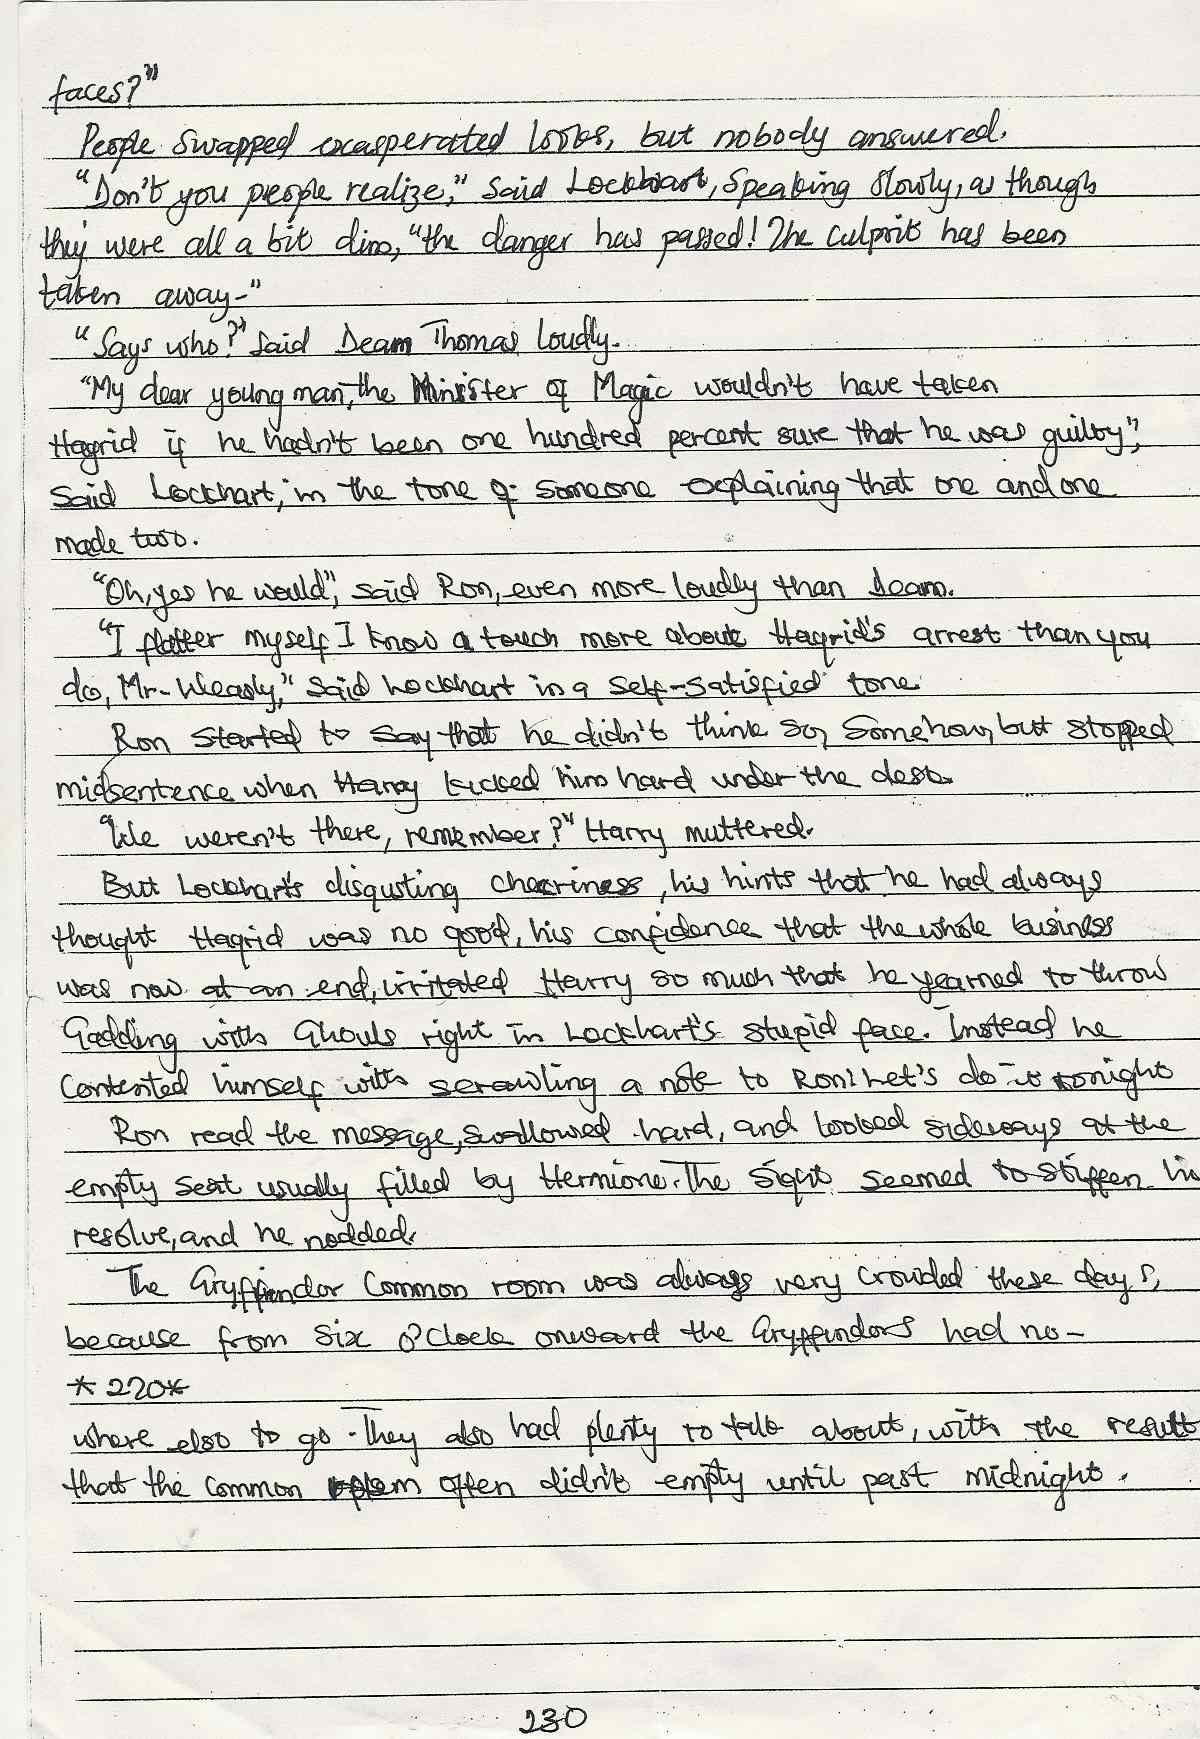 faces?"
People swapped exasperated looks, but nobody answered.
"Don't you people realize," said Lockhart, speaking slowly, as though
they were all a bit dim, "the danger has passed! The culprit has been
taken away-"
"Says who?" said Deam Thomas loudly.
"My dear young man, the Minister of Magic wouldn't have taken
Hagrid if he hadn't been one hundred percent sure that he was guilty",
said Lockhart, in the tone of someone explaining that one and one
made two.
"Oh, yes he would", said Ron, even more loudly than Deam.
"I flatter myself I know a touch more about Hagrid's arrest than you
do, Mr-Weasly," said Lockhart in a self-satisfied tone.
Ron started to say that he didn't think so, somehow, but stopped
midsentence when Harry kicked him hard under the desk.
"We weren't there, remember?" Harry muttered.
But Lockhart's disgusting cheeriness, his hints that he had always
thought Hagrid was no good, his confidence that the whole business
was now at an end, irritated Harry so much that he yearned to throw
Gadding with Ghouls right in Lockhart's stupid face. Instead he
contented himself with scrawling a note to Ron: Let's do it tonight
Ron read the message, swallowed hard, and looked sideways at the
empty seat usually filled by Hermione. The sight seemed to stiffen his
resolve, and he nodded.
The Gryffindor Common room was always very crowded these days,
because from six o'clock onward the Gryffindors had no-
*220*
where else to go. They also had plenty to talk about, with the result
that the common room often didn't empty until past midnight.
230